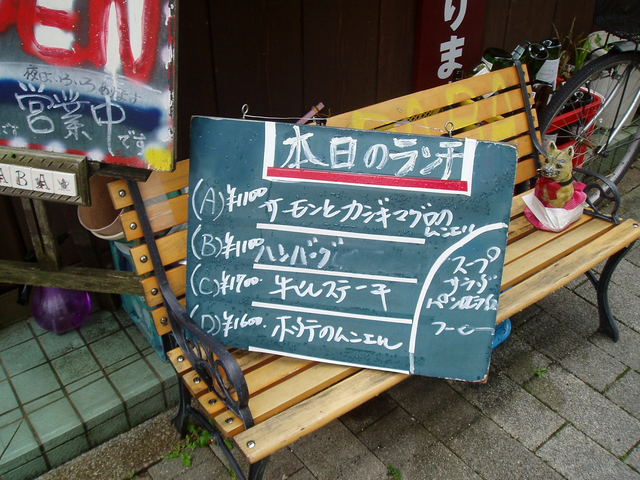 EN
夜はいろいろあります
営業中です
ABA
りま
本日のランチ
(A) ¥1100 サーモンとカジキマグロの
ムニエル
(B) ¥1100 ハンバーグ
(C) ¥1700 牛ヒレステーキ
(D) ¥1600. ホタテのムニエル
スープ
サラダ
パン又はライス
コーヒー